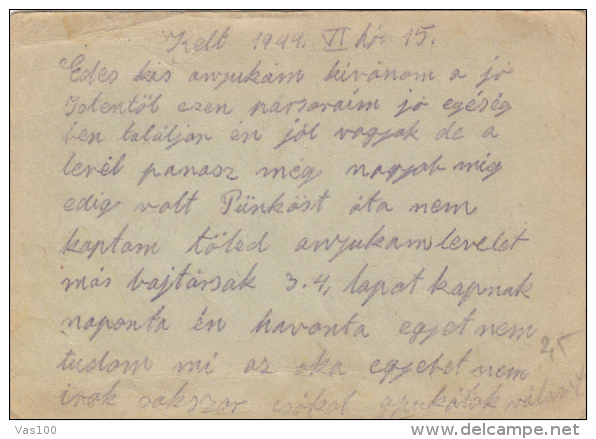 Kelt 1944. VI hó 15.
Edes kis anyukám kivánom a jó
Istentöl ezen pár soraim jó egéség
ben találjon én jól vagyok de a
levél panasz még nagyob mig
edig volt Pünköst óta nem
kaptam töled anyukam levelet
más bajtársak 3.4, lapot kapnak
naponta én havonta egyet nem
tudom mi az oka egyebet nem
irok sokszor csókol
Vas100
www.delcampe.net